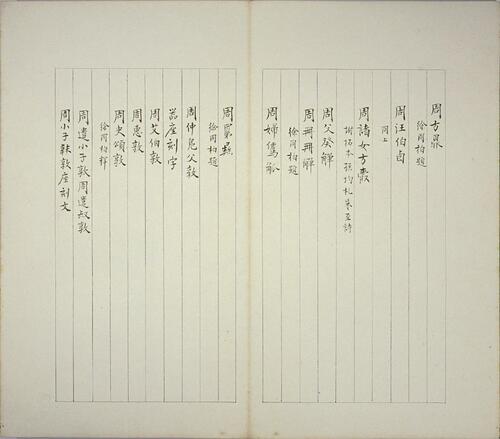 周方鼎
徐同柏題
周汪伯卣
同上
周諸女方爵
周父癸觶
周冊冊觶
徐同柏題
周婦觚
徐同柏題
周仲 父敦
器座刻字
周艾伯敦
周惠敦
周史頌敦
徐同柏釋
周遣小子敦周遣叔敦
周小子敦座刻文